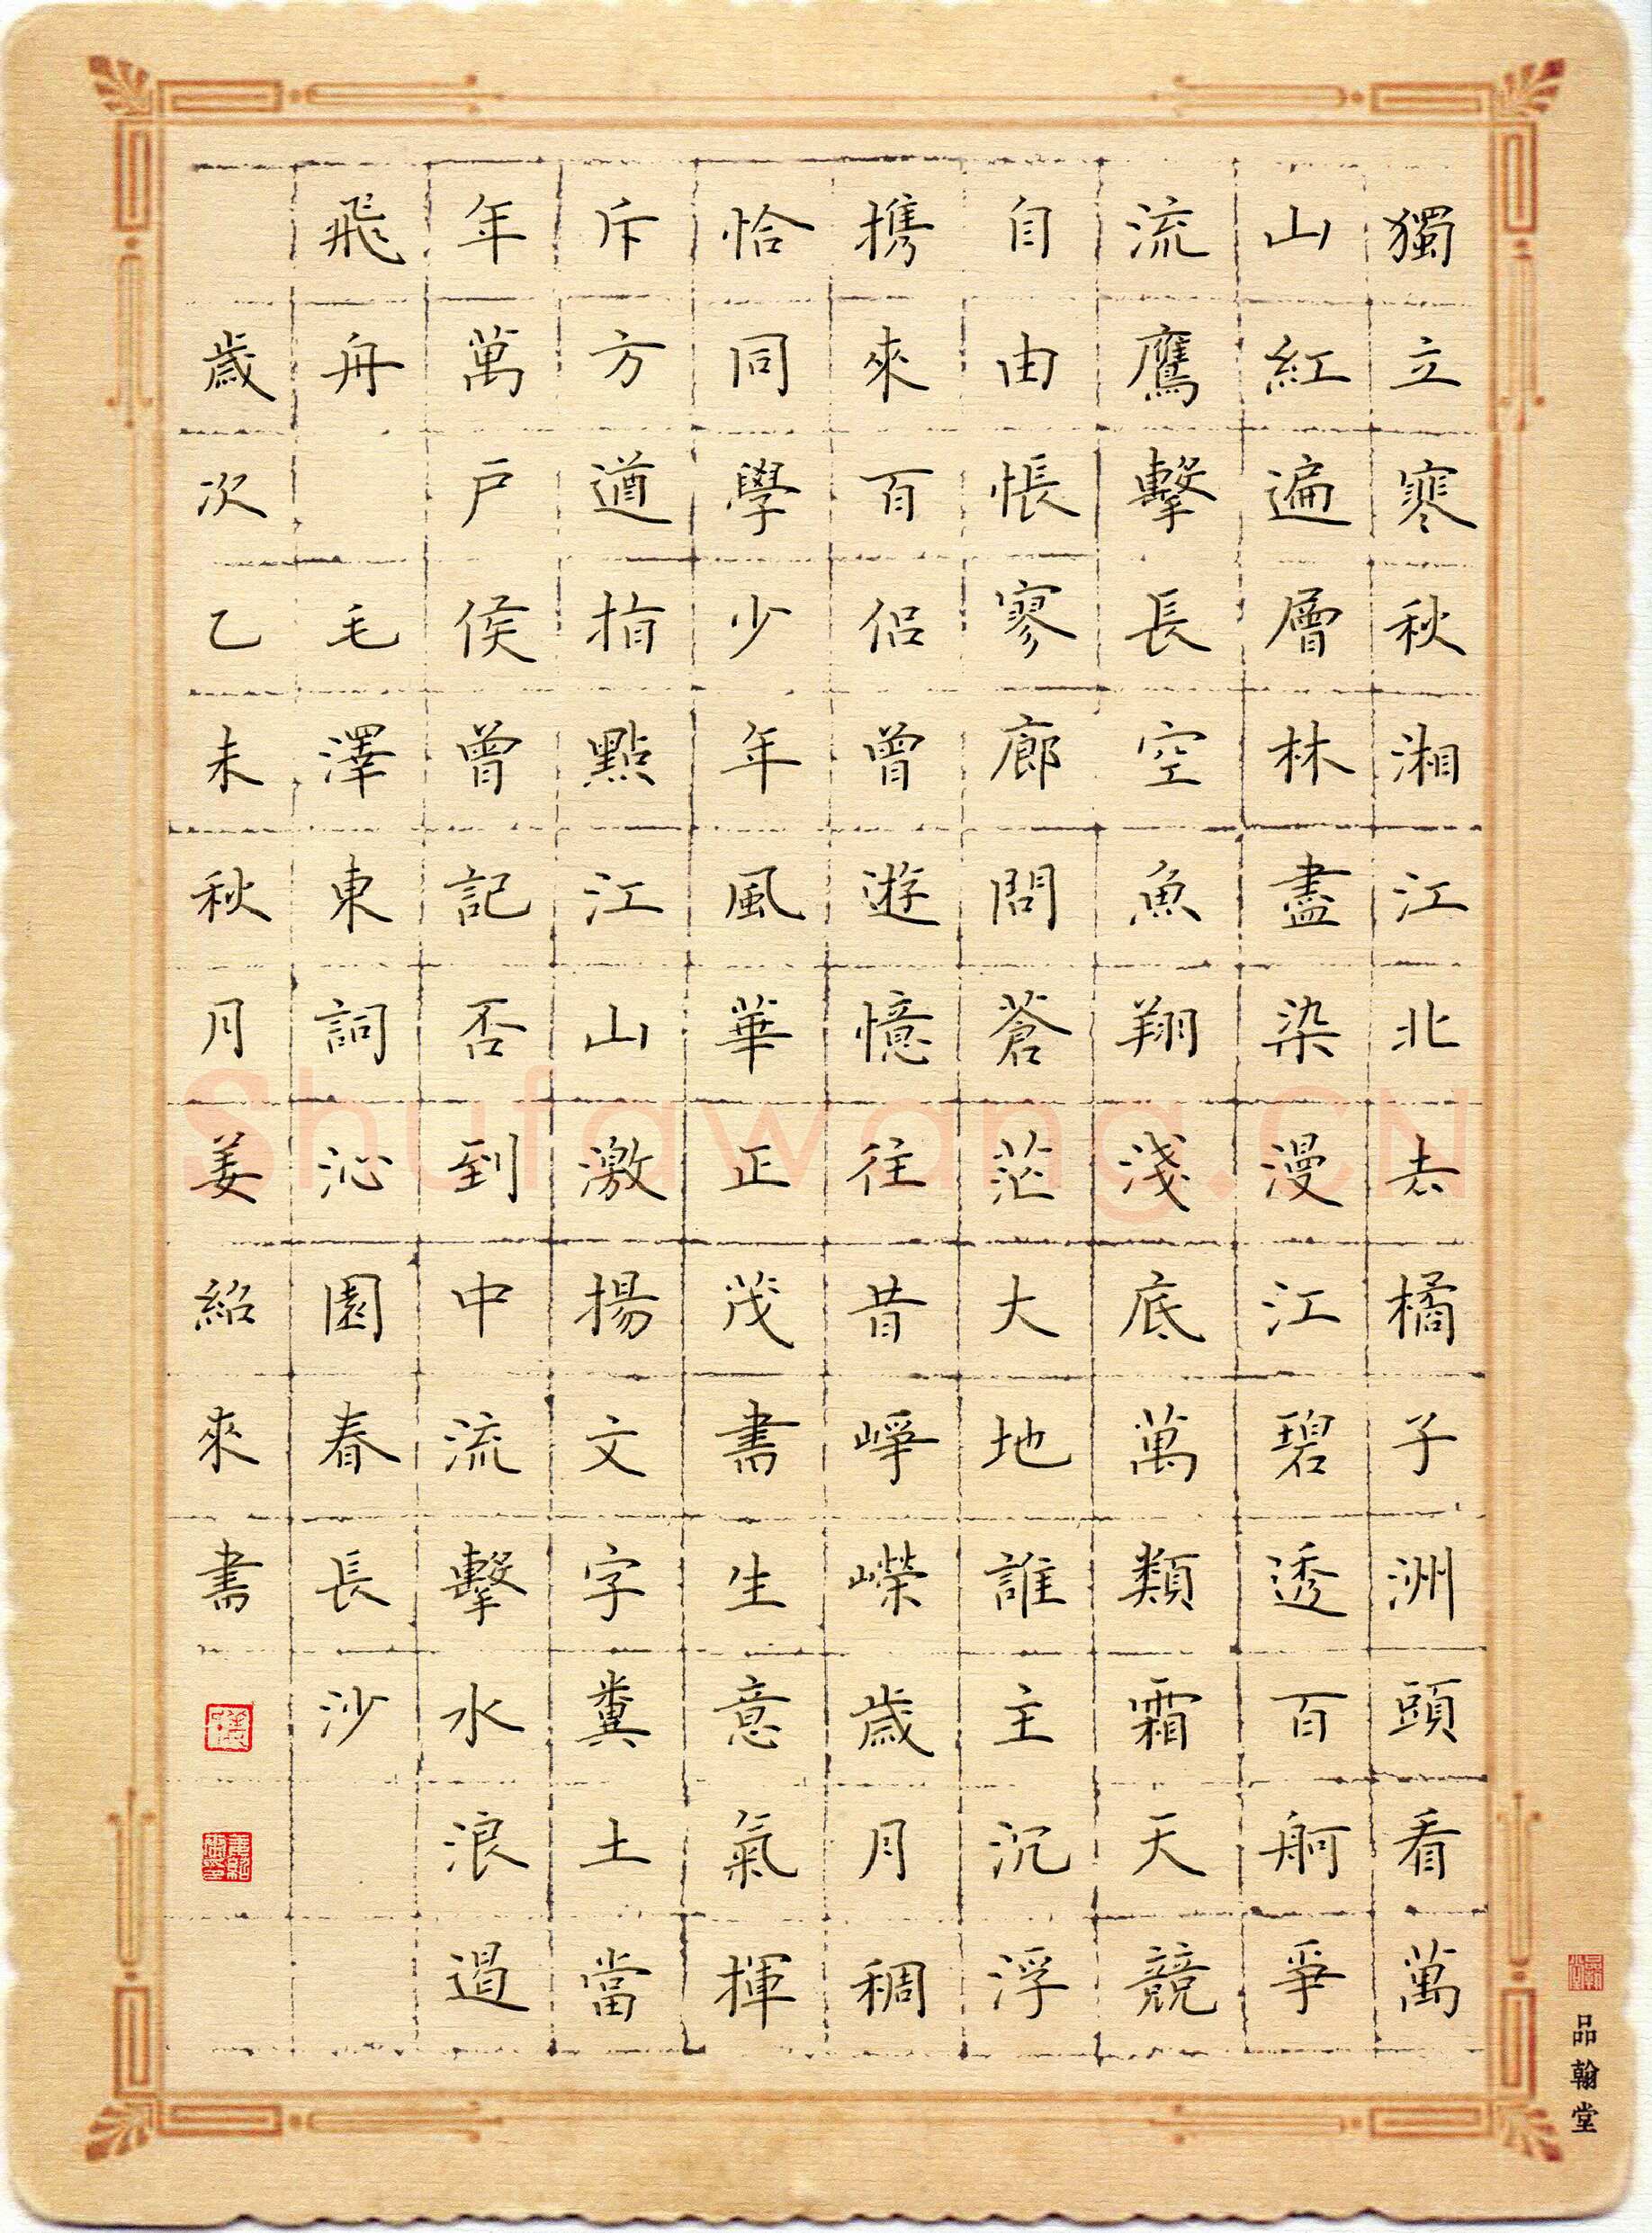 獨立寒秋湘江北去橘子洲頭看萬
山紅遍層林盡染漫江碧透百舸爭
流鷹擊長空魚翔淺底萬類霜天競
自由悵寥廓問蒼茫大地誰主沉浮
携來百侶曾遊憶往昔崢嶸歲月稠
恰同學少年風華正茂書生意氣揮
斥方遒指點江山激揚文字糞土當
年萬戶侯曾記否到中流擊水浪遏
飛舟 毛澤東詞沁園春長沙
歲次乙未秋月姜紹來書
品翰堂
Shufawang.CN